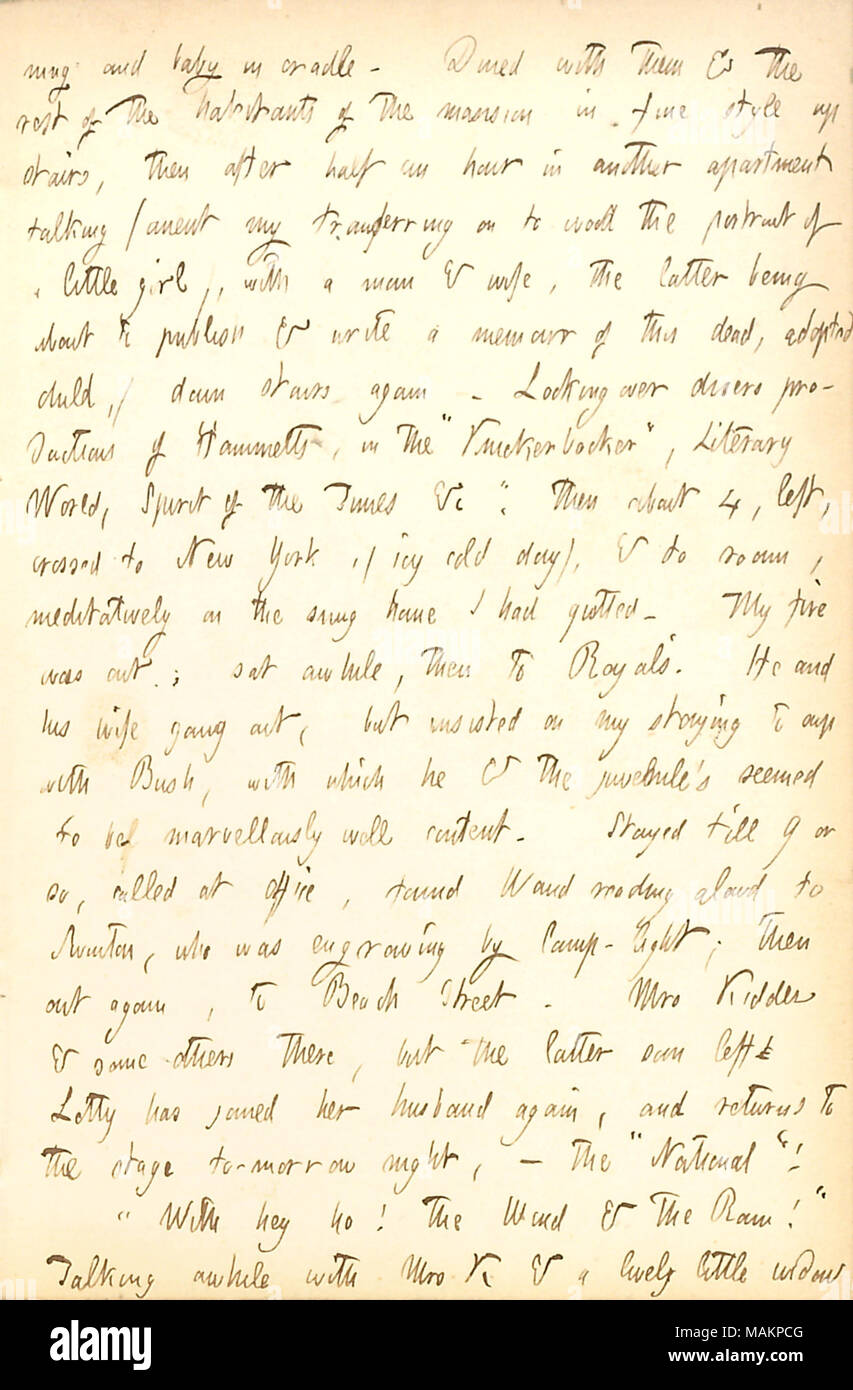 ning and baby in cradle. Dined with them & the
rest of the habitants of the mansion in fine style up
stairs, then after half an hour in another apartment
talking (anent my transferring on to wood the portrait of
a little girl,) with a man & wife, the latter being
about to publish & write a memoir of this dead, adopted
child,) down stairs again. Looking over divers pro-
ductions of Hammetts, in the "Knickerbocker", Literary
World, Spirit of the Times &c; then about 4, left,
crossed to New York, (icy cold day), & to room,
meditatively on the snug home I had quitted. My fire
was out; sat awhile, then to Royals. He and
his wife going out, but insisted on my staying to sup
with Bush, with which he & the juvenile's seemed
to be marvellously well content. Stayed till 9 or
so, called at office, found Wand reading aloud to
Swinton, who was engraving by lamp-light; then
out again, to Beach Street. Mrs Kidder
& some others there, but the latter soon left
Letty has joined her husband again, and returns to
the stage to-morrow night, — the "National"!
"With hey ho! the Wind & the Rain!"
Talking awhile with Mrs K & a lively little widow
alamy
Image ID: MAKPCG
www.alamy.com